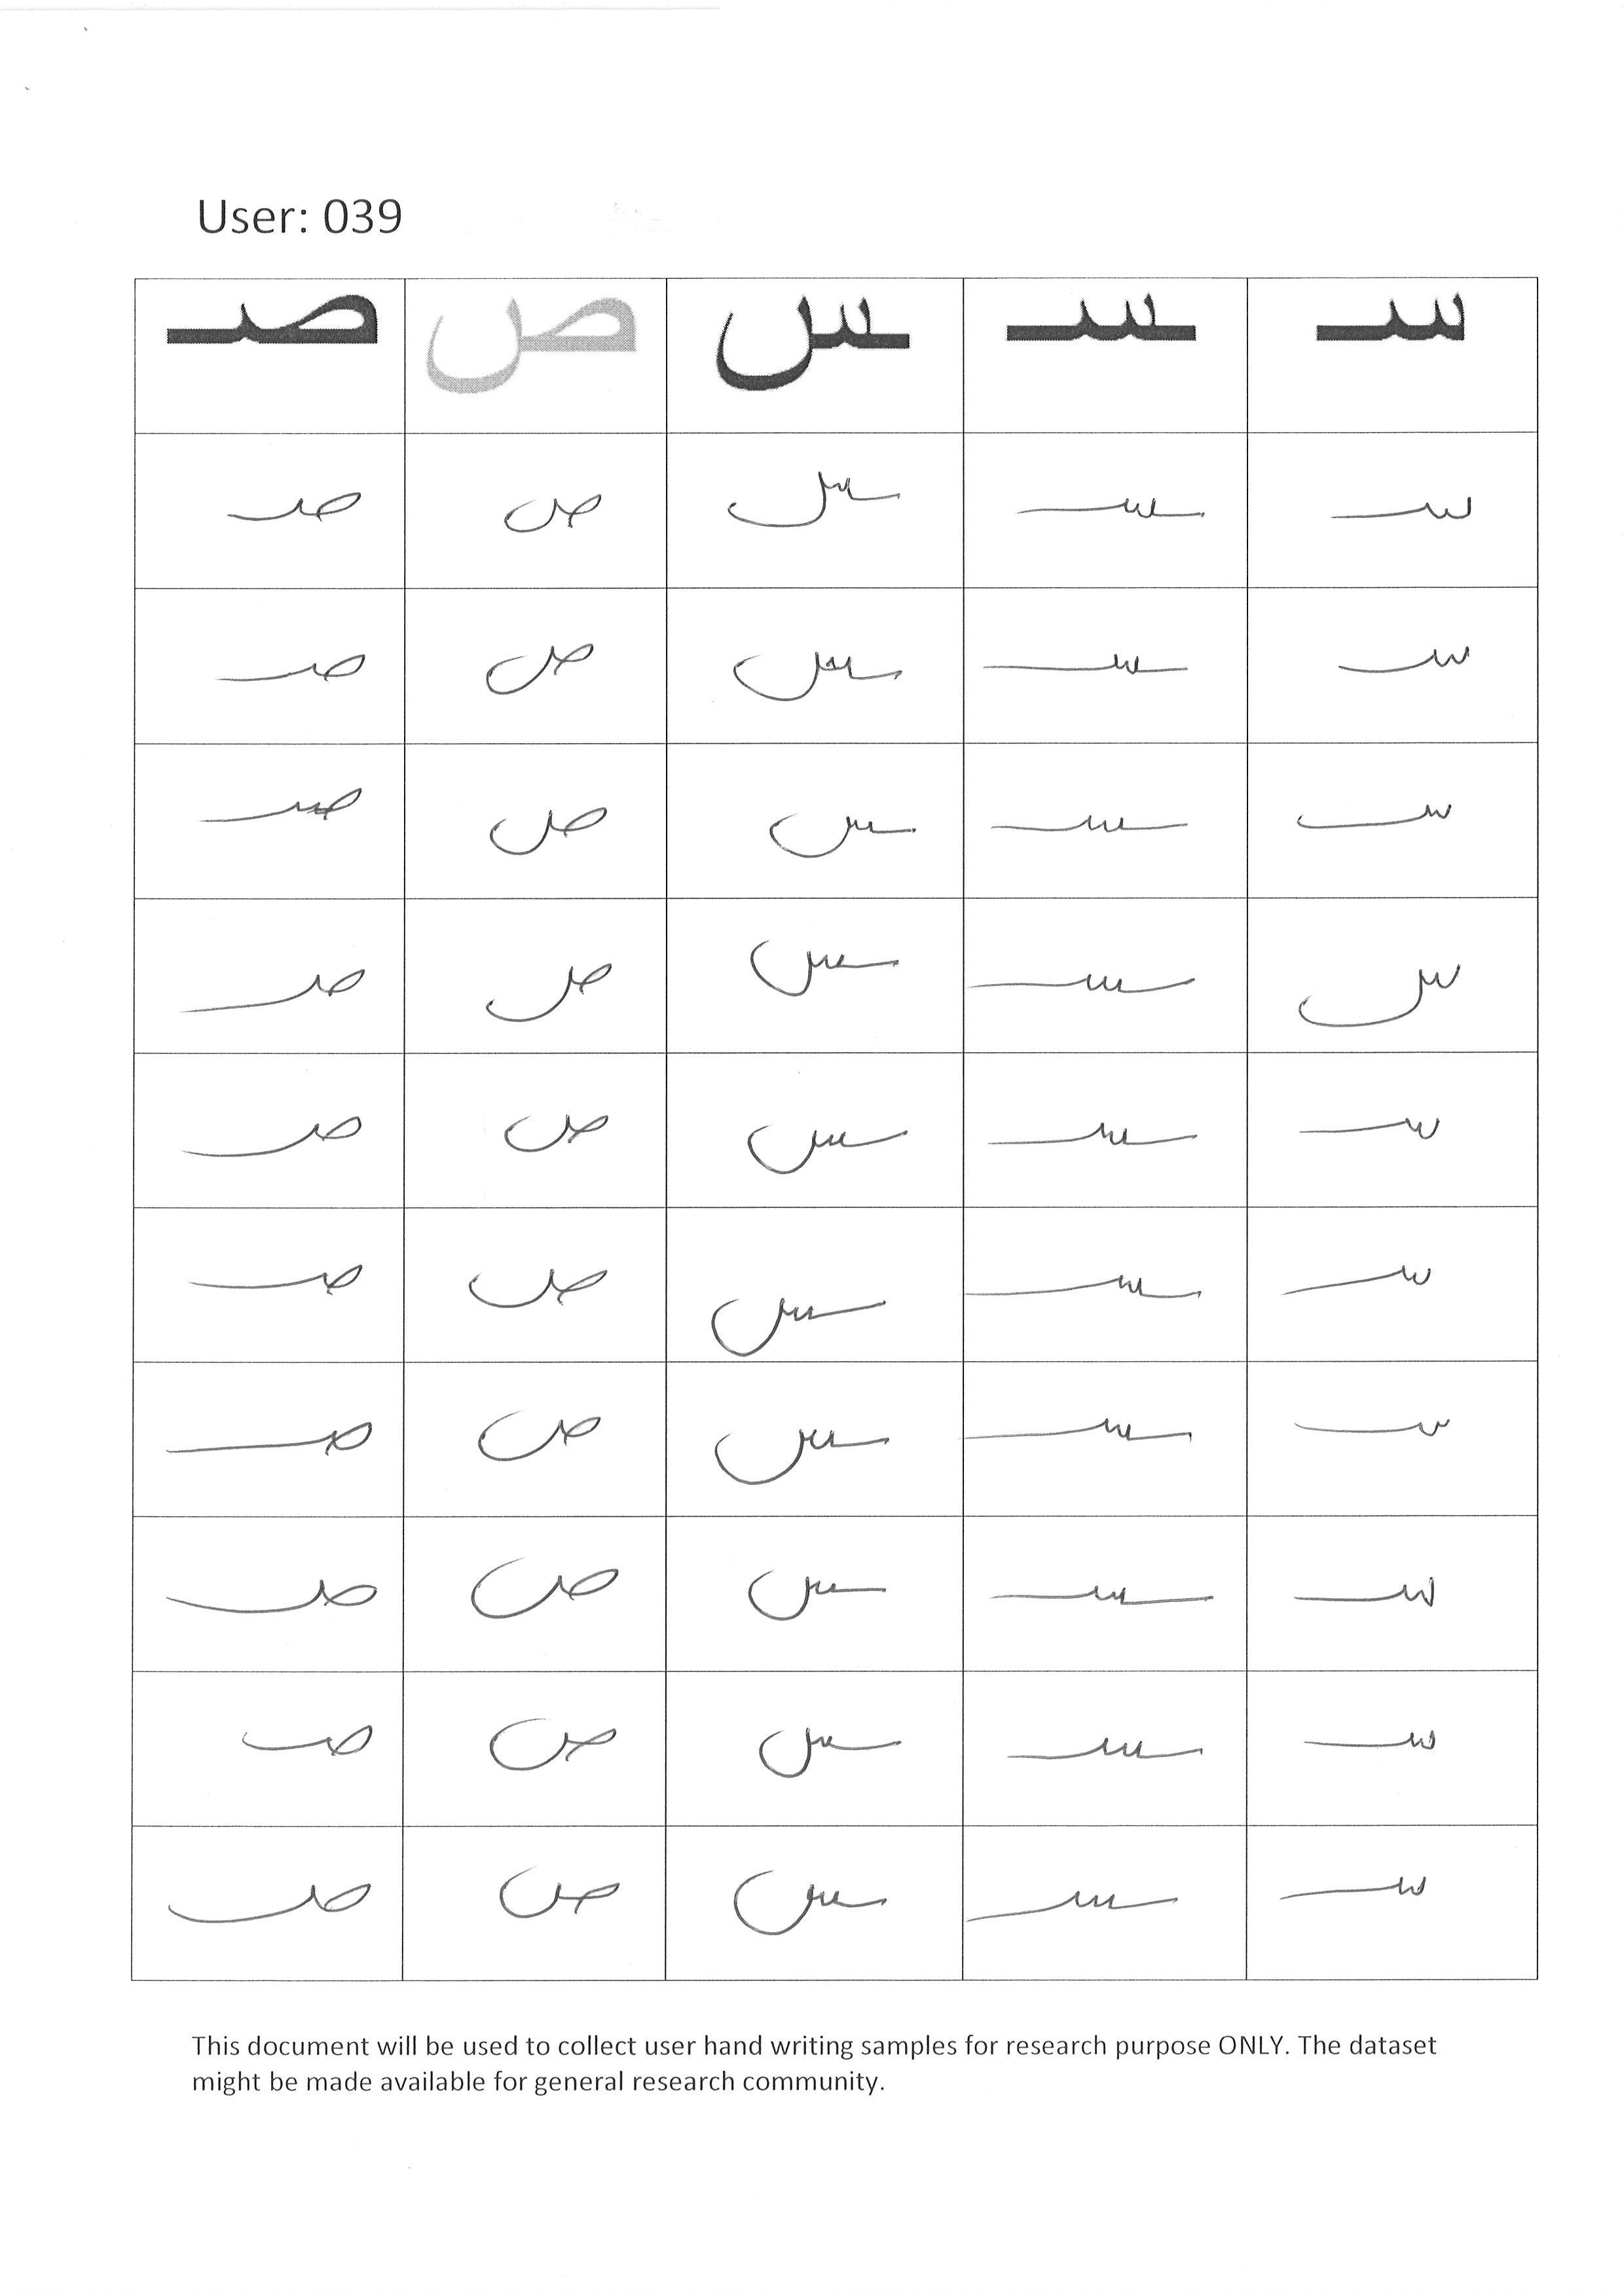 User: 039
سـ ـسـ ـس ص صـ
سـ ـسـ ـس ص صـ
سـ ـسـ ـس ص صـ
سـ ـسـ ـس ص صـ
س ـسـ ـس ص صـ
سـ ـسـ ـس ص صـ
سـ ـسـ ـس ص صـ
سـ ـسـ ـس ص صـ
سـ ـسـ ـس ص صـ
سـ ـسـ ـس ص صـ
سـ ـسـ ـس ص صـ
This document will be used to collect user hand writing samples for research purpose ONLY. The dataset
might be made available for general research community.